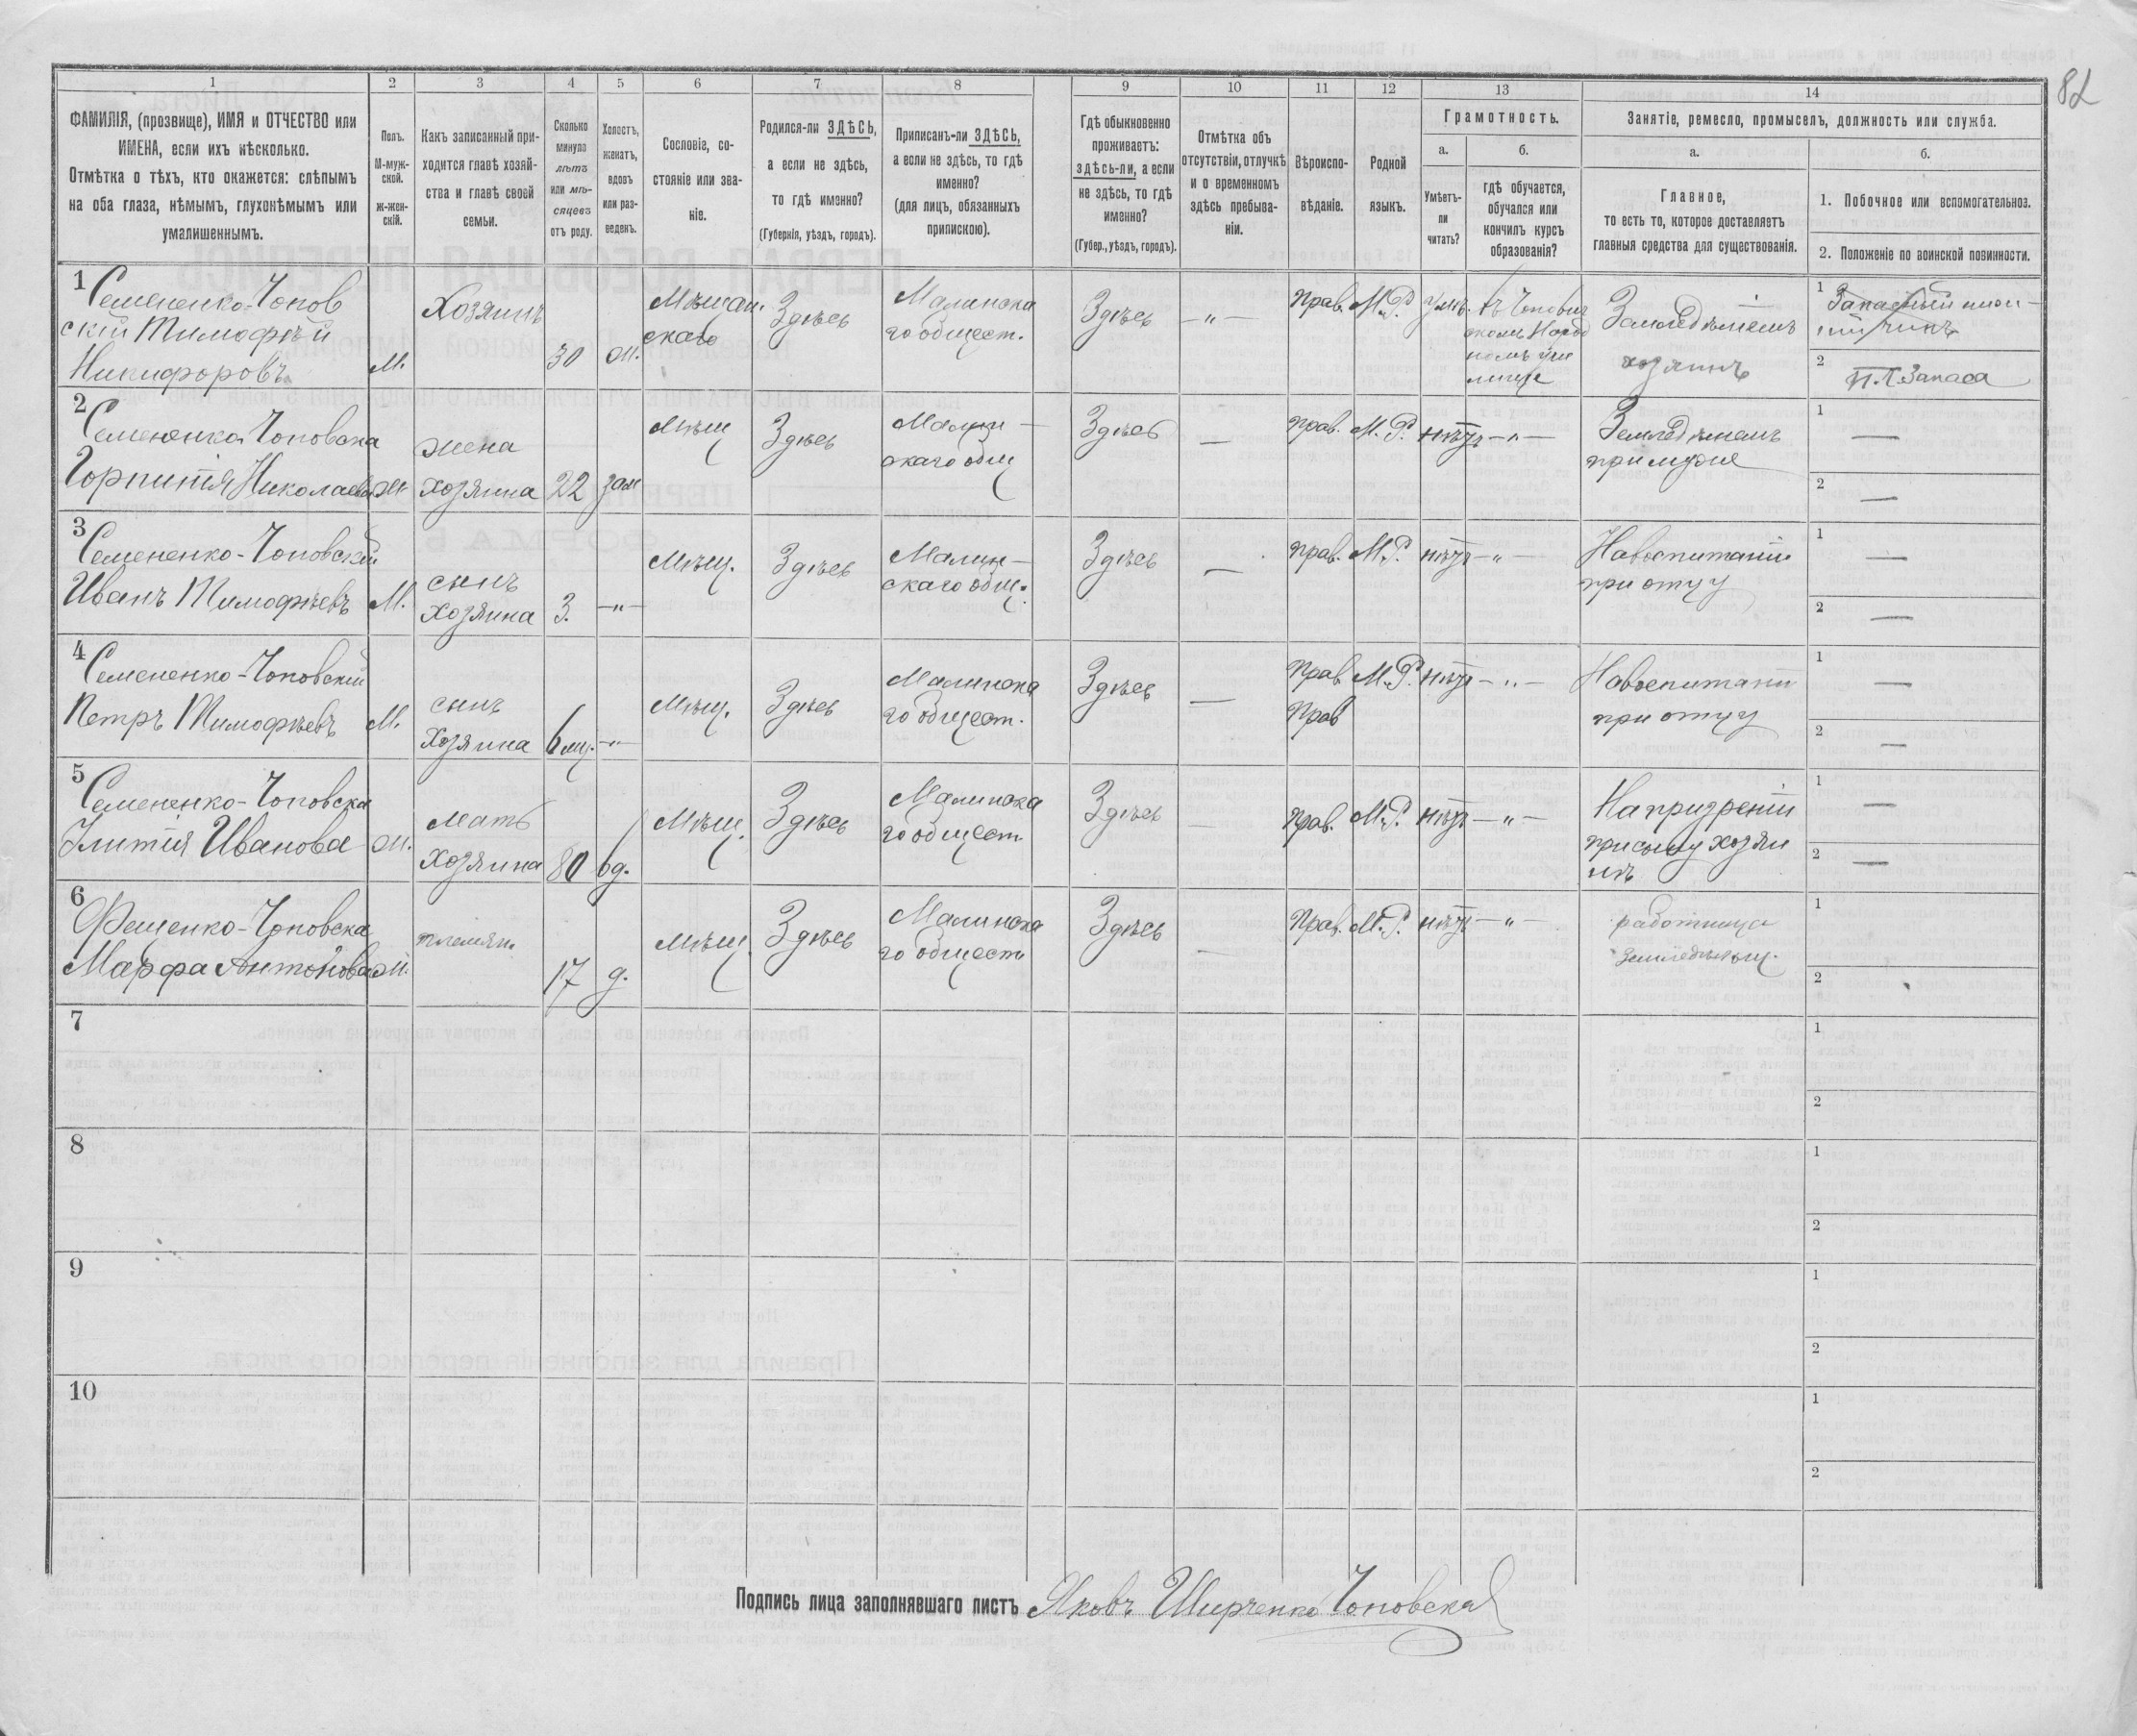 82
1 2 3 4 5 6 7 8 9 10 11 12 13 14
ФАМИЛІЯ, (прозвище), ИМЯ и ОТЧЕСТВО или
ИМЕНА, если ихъ нѣсколько.
Отмѣтка о тѣхъ, кто окажется: слѣпымъ
на оба глаза, нѣмымъ, глухонѣмымъ или
умалишеннымъ.
Полъ.
М-муж-
ской.
ж-жен-
скій.
Какъ записанный при-
ходится главѣ хозяй-
ства и главѣ своей
семьи.
Сколько
минуло
лѣтъ
или мѣ-
сяцевъ
отъ роду.
Холостъ,
женатъ,
вдовъ
или раз-
веденъ.
Сословіе, со-
стояніе или зва-
ніе.
Родился-ли ЗДѢСЬ,
а если не здѣсь,
то гдѣ именно?
(Губернія, уѣздъ, городъ).
Приписанъ-ли ЗДѢСЬ,
а если не здѣсь, то гдѣ
именно?
(для лицъ, обязанныхъ
припискою).
Гдѣ обыкновенно
проживаетъ:
здѣсь-ли, а если
не здѣсь, то гдѣ
именно?
(Губер., уѣздъ, городъ).
Отмѣтка объ
отсутствіи, отлучкѣ
и о временномъ
здѣсь пребыва-
ніи.
Вѣроиспо-
вѣданіе.
Родной
языкъ.
Грамотность.
а.
Умѣетъ-
ли
читать?
б.
гдѣ обучается,
обучался или
кончилъ курсъ
образованія?
Занятіе, ремесло, промыселъ, должность или служба.
а.
Главное,
то есть то, которое доставляетъ
главныя средства для существованія.
б.
1. Побочное или вспомогательноз.
2. Положеніе по воинской повинности.
1 Семененко-Чопов
скій Тимофѣй
Никифоровъ
М.
Хозяинъ
30
Мѣщан.
скаго
Здѣсь
Малинска
го общест.
Здѣсь
—"—
Прав.
М.Р.
въ Чопович
скомъ Народ
номъ учи
лищѣ
хозяинъ
1
2
Н.Ч. Запаса
2
Семененко Чоповска
Горпитія Николаева
ж
жена
хозяина
22
зам
Мѣщ
Здѣсь
Малин—
скаго общ
Здѣсь
—
Прав.
М.Р.
нѣтъ
—"—
при мужѣ
1 —
2 —
3
Семененко-Чоповскій
Иванъ Тимофѣевъ
М.
сынъ
хозяина
3.
—"—
Мѣщ.
Здѣсь
Малин—
скаго общ.
Здѣсь
—
Прав.
М.Р.
нѣтъ
—"—
На воспитаніи
при отцу
1 —
2 —
4
Семененко-Чоповскій
Петръ Тимофѣевъ
М.
сынъ
хозяина
6 мц.
—"—
Мѣщ.
Здѣсь
Малинска
го общест.
Здѣсь
—
Прав
Прав
М.Р.
нѣтъ
—"—
На воспитаніи
при отцу
1 —
2 —
5
Семененко-Чоповска
Улитія Иванова
ж.
мать
хозяина
80
вд.
Мѣщ.
Здѣсь
Малинска
го общест
Здѣсь
—
Прав.
М.Р.
нѣтъ
—"—
На призреніи
при сыну хозяи
нѣ
1 —
2 —
6
Фещенко-Чоповска
Марфа Антонова
ж.
племян.
17
д.
Мѣщ.
Здѣсь
Малинска
го общест
Здѣсь
—
Прав.
М.Р.
нѣтъ
—"—
работница
земледѣльч.
1
2
7
1
2
8
1
2
9
1
2
10
1
2
Подпись лица заполнявшаго листъ Яковъ Чоповскій